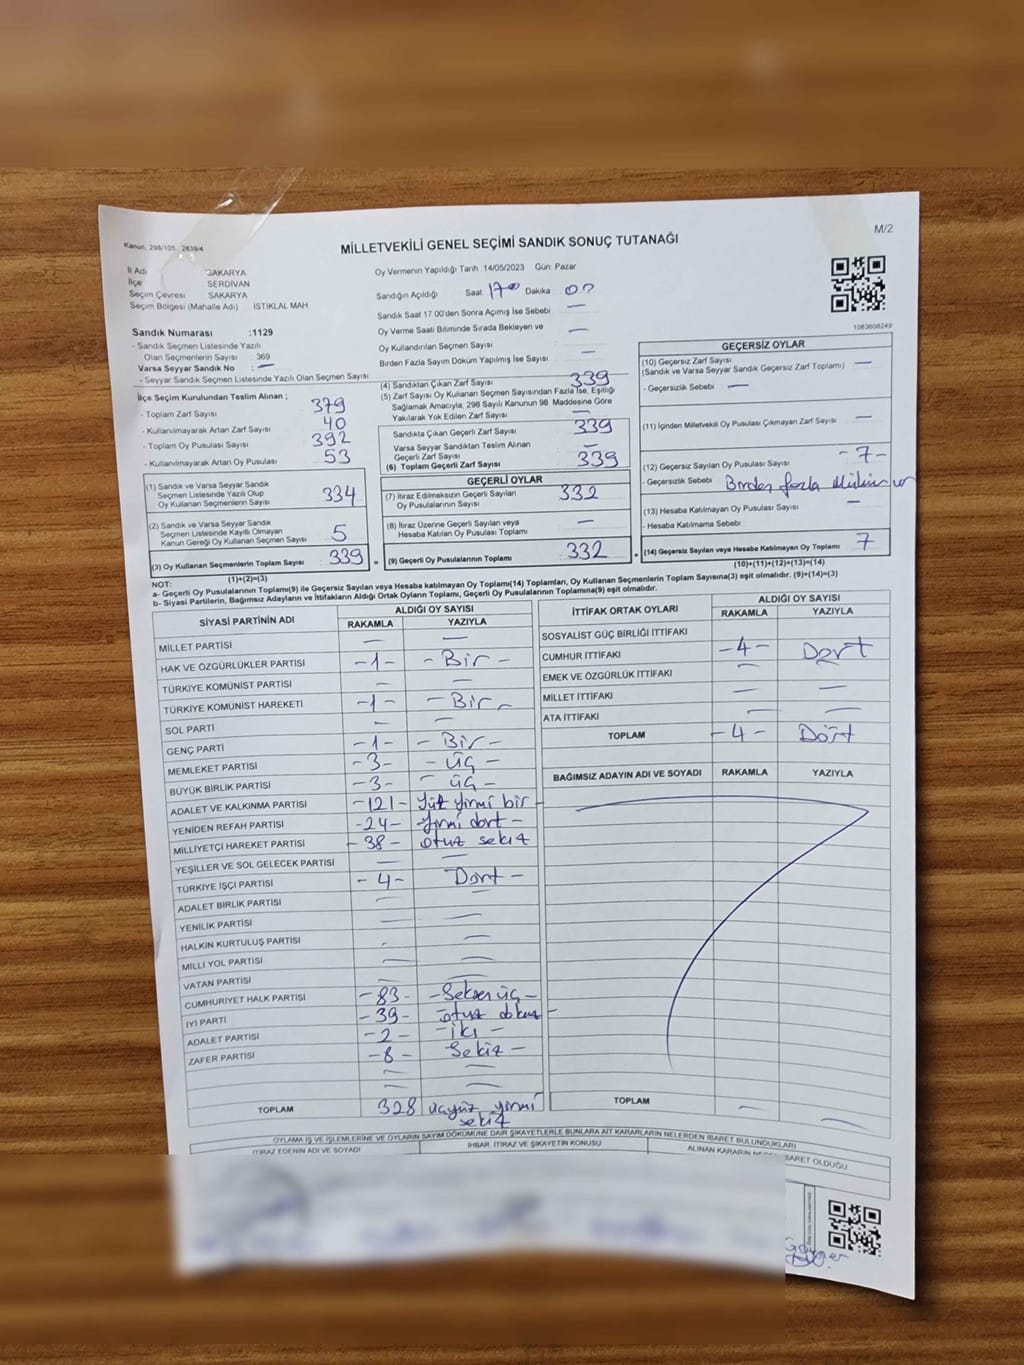 Kanun: 298/105, 2839/4
M/2
MİLLETVEKİLİ GENEL SEÇİMİ SANDIK SONUÇ TUTANAĞI
İl Adı SAKARYA
İlçe SERDİVAN
Seçim Çevresi SAKARYA
Seçim Bölgesi (Mahalle Adı) İSTİKLAL MAH
Sandık Numarası :1129
- Sandık Seçmen Listesinde Yazılı
Olan Seçmenlerin Sayısı 369
Varsa Seyyar Sandık No : —
- Seyyar Sandık Seçmen Listesinde Yazılı Olan Seçmen Sayısı
İlçe Seçim Kurulundan Teslim Alınan ;
- Toplam Zarf Sayısı 379
- Kullanılmayarak Artan Zarf Sayısı 40
- Toplam Oy Pusulası Sayısı 392
- Kullanılmayarak Artan Oy Pusulası 53
(1) Sandık ve Varsa Seyyar Sandık
Seçmen Listesinde Yazılı Olup
Oy Kullanan Seçmenlerin Sayısı 334
(2) Sandık ve Varsa Seyyar Sandık
Seçmen Listesinde Kayıtlı Olmayan
Kanun Gereği Oy Kullanan Seçmen Sayısı 5
(3) Oy Kullanan Seçmenlerin Toplam Sayısı 339
(1)+(2)=(3)
Oy Vermenin Yapıldığı Tarih 14/05/2023 Gün Pazar
Sandığın Açıldığı Saat 17 00 Dakika
Sandık Saat 17 00'den Sonra Açılmış İse Sebebi —
Oy Verme Saati Bitiminde Sırada Bekleyen ve
Oy Kullandırılan Seçmen Sayısı —
Birden Fazla Sayım Döküm Yapılmış İse Sayısı —
(4) Sandıktan Çıkan Zarf Sayısı 339
(5) Zarf Sayısı Oy Kullanan Seçmen Sayısından Fazla İse, Eşitliği
Sağlamak Amacıyla, 298 Sayılı Kanunun 98 Maddesine Göre
Yakılarak Yok Edilen Zarf Sayısı —
Sandıkta Çıkan Geçerli Zarf Sayısı 339
Varsa Seyyar Sandıktan Teslim Alınan
Geçerli Zarf Sayısı —
(6) Toplam Geçerli Zarf Sayısı 339
GEÇERLİ OYLAR
(7) İtiraz Edilmeksizin Geçerli Sayılan
Oy Pusulalarının Sayısı 332
(8) İtiraz Üzerine Geçerli Sayılan veya
Hesaba Katılan Oy Pusulası Toplamı —
= (9) Geçerli Oy Pusulalarının Toplamı 332
1083608249
GEÇERSİZ OYLAR
(10) Geçersiz Zarf Sayısı —
(Sandık ve Varsa Seyyar Sandık Geçersiz Zarf Toplamı)
- Geçersizlik Sebebi —
(11) İçinden Milletvekili Oy Pusulası Çıkmayan Zarf Sayısı —
(12) Geçersiz Sayılan Oy Pusulası Sayısı -7-
- Geçersizlik Sebebi Birden fazla
(13) Hesaba Katılmayan Oy Pusulası Sayısı —
- Hesaba Katılmama Sebebi
+ (14) Geçersiz Sayılan veya Hesaba Katılmayan Oy Toplamı 7
(10)+(11)+(12)+(13)=(14)
NOT:
a- Geçerli Oy Pusulalarının Toplamı(9) ile Geçersiz Sayılan veya Hesaba katılmayan Oy Toplamı(14) Toplamları, Oy Kullanan Seçmenlerin Toplam Sayısına(3) eşit olmalıdır. (9)+(14)=(3)
b- Siyasi Partilerin, Bağımsız Adayların ve İttifakların Aldığı Ortak Oyların Toplamı, Geçerli Oy Pusulalarının Toplamına(9) eşit olmalıdır.
SİYASİ PARTİNİN ADI ALDIĞI OY SAYISI
RAKAMLA YAZIYLA
MİLLET PARTİSİ — —
HAK VE ÖZGÜRLÜKLER PARTİSİ -1- - Bir -
TÜRKİYE KOMÜNİST PARTİSİ — —
TÜRKİYE KOMÜNİST HAREKETİ -1- - Bir -
SOL PARTİ — —
GENÇ PARTİ -1- - Bir -
MEMLEKET PARTİSİ -3- - üç -
BÜYÜK BİRLİK PARTİSİ -3- - üç -
ADALET VE KALKINMA PARTİSİ -121- Yüz yirmi bir -
YENİDEN REFAH PARTİSİ -24- - yirmi dört -
MİLLİYETÇİ HAREKET PARTİSİ -38- otuz sekiz
YEŞİLLER VE SOL GELECEK PARTİSİ — —
TÜRKİYE İŞÇİ PARTİSİ -4- Dört -
ADALET BİRLİK PARTİSİ — —
YENİLİK PARTİSİ — —
HALKIN KURTULUŞ PARTİSİ - —
MİLLİ YOL PARTİSİ — —
VATAN PARTİSİ — —
CUMHURİYET HALK PARTİSİ -83- - Seksen üç -
İYİ PARTİ -39- otuz dokuz -
ADALET PARTİSİ -2- - iki -
ZAFER PARTİSİ -8- Sekiz -
TOPLAM 328 üçyüz yirmi
sekiz
İTTİFAK ORTAK OYLARI ALDIĞI OY SAYISI
RAKAMLA YAZIYLA
SOSYALİST GÜÇ BİRLİĞİ İTTİFAKI
CUMHUR İTTİFAKI -4- Dört
EMEK VE ÖZGÜRLÜK İTTİFAKI —
MİLLET İTTİFAKI — —
ATA İTTİFAKI — —
TOPLAM -4- Dört
BAĞIMSIZ ADAYIN ADI VE SOYADI RAKAMLA YAZIYLA
TOPLAM — —
OYLAMA İŞ VE İŞLEMLERİNE VE OYLARIN SAYIM DÖKÜMÜNE DAİR ŞİKAYETLERLE BUNLARA AİT KARARLARIN NELERDEN İBARET BULUNDUKLARI
İTİRAZ EDENİN ADI VE SOYADI İHBAR, İTİRAZ VE ŞİKAYETİN KONUSU ALINAN KARARIN İBARET OLDUĞU